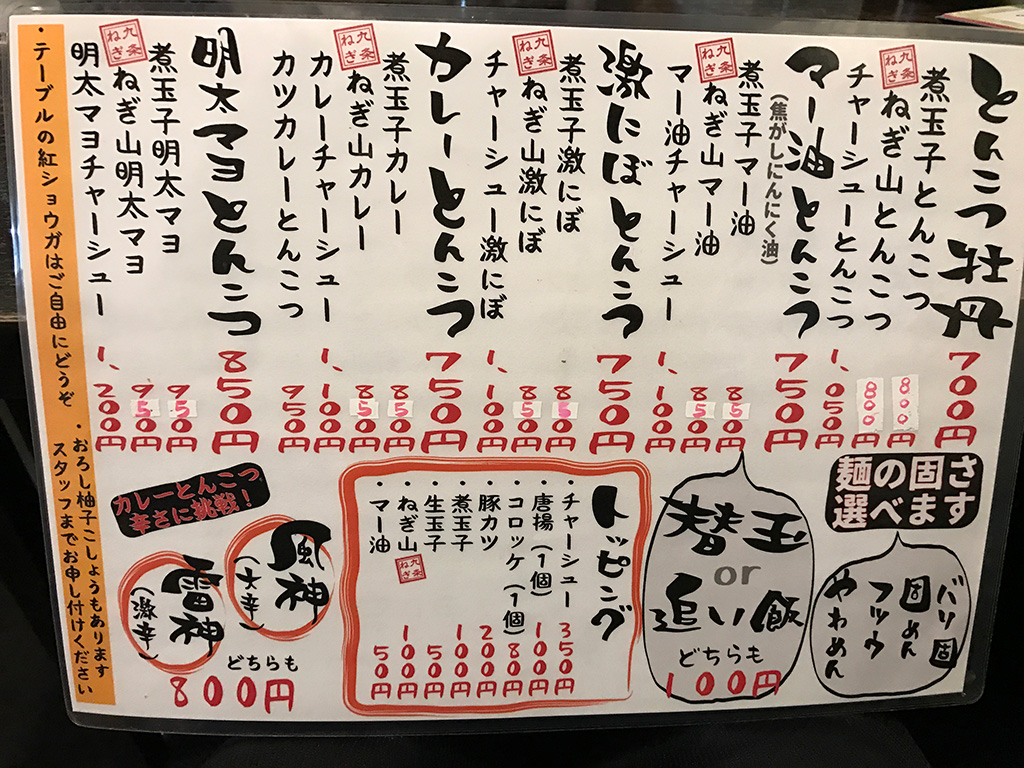 とんこつ牡丹 700円
煮玉子とんこつ 800円
九条ねぎ ねぎ山とんこつ 800円
チャーシューとんこつ 1,050円
マー油とんこつ 750円
(焦がしにんにく油)
煮玉子マー油 850円
九条ねぎ ねぎ山マー油 850円
マー油チャーシュー 1,100円
激にぼとんこつ 750円
煮玉子激にぼ 850円
九条ねぎ ねぎ山激にぼ 850円
チャーシュー激にぼ 1,100円
カレーとんこつ 750円
煮玉子カレー 850円
九条ねぎ ねぎ山カレー 850円
カレーチャーシュー 1,100円
カツカレーとんこつ 950円
明太マヨとんこつ 850円
煮玉子明太マヨ 950円
九条ねぎ ねぎ山明太マヨ 950円
明太マヨチャーシュー 1,200円
麺の固さ
選べます
バリ固
固めん
フツウ
やわめん
替玉
or
追い飯
どちらも
100円
トッピング
・チャーシュー 350円
・唐揚(1個) 100円
・コロッケ(1個) 80円
・豚カツ 200円
・煮玉子 100円
・生玉子 50円
・ねぎ山 九条ねぎ 100円
・マー油 50円
カレーとんこつ
辛さに挑戦!
風神
(大辛)
雷神
(激辛)
どちらも
800円
・テーブルの紅ショウガはご自由にどうぞ
・おろし柚子こしょうもあります
スタッフまでお申し付けください